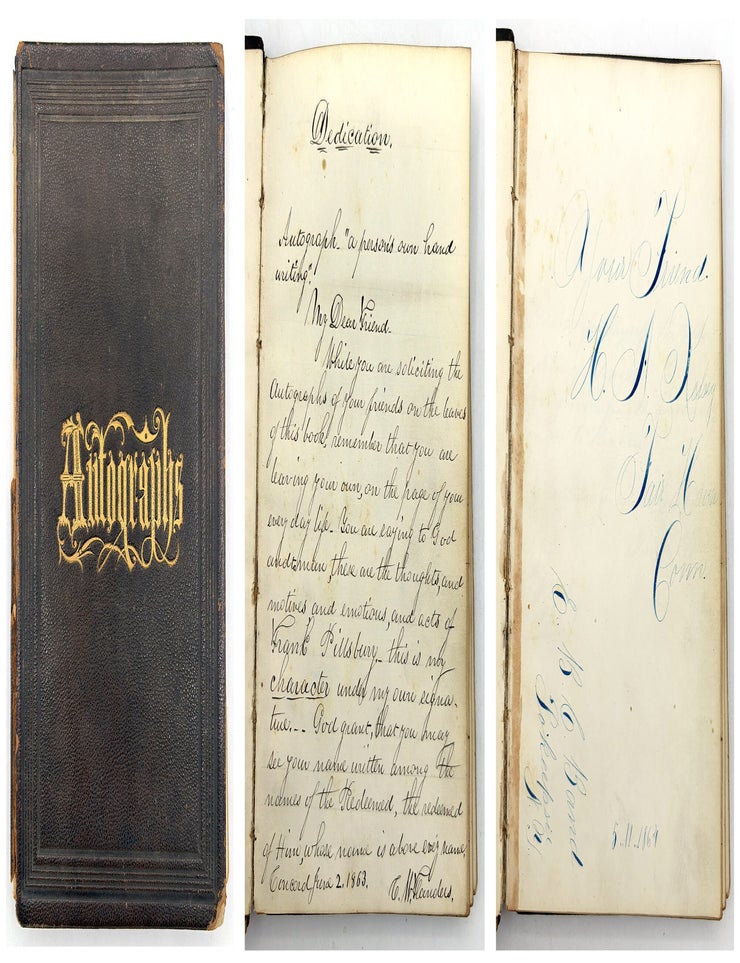 Autographs
Dedication.
Autograph - "a person's own hand
writing".
My Dear Friend -
While you are soliciting the
Autographs of your friends on the leaves
of this book, remember that you are
leaving your own, on the page of your
every day life - You are saying to God
and man, these are the thoughts, and
motives and emotions, and acts of
Frank Pillsbury - this is my
character under my own signa-
ture. - - God grant, that you may
see your name written among the
names of the Redeemed, the redeemed
of Him, whose name is above every name,
Concord June 2. 1863.
Flanders.
Your Friend.
H.
Fair Haven
Conn.
E B E Band
5.11.1869